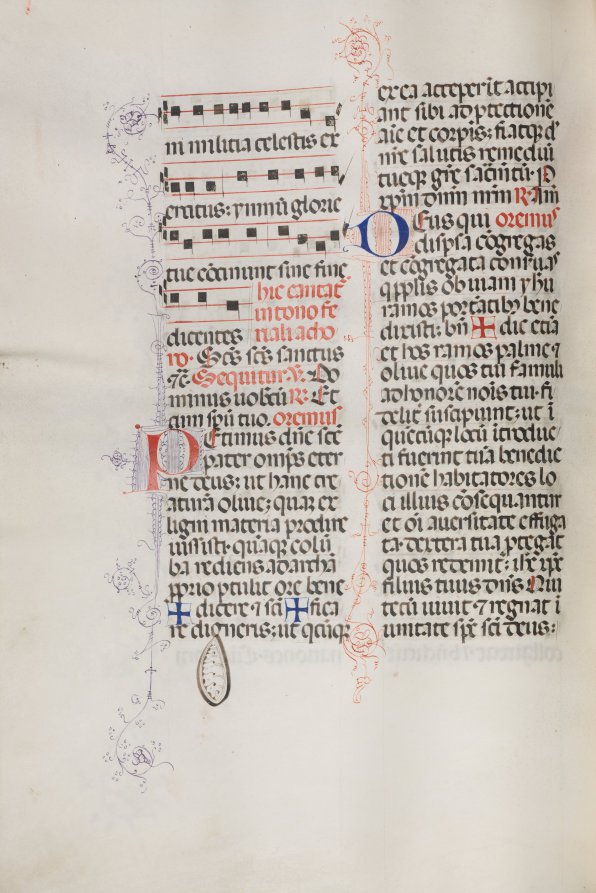 m militia celestis ex
ercitus: ymnū glorie
tue cōcinunt sine fine
hic cantat̄
in tono fe
dicentes riali a cho
ro. Sc̄s sc̄s sanctus
⁊c̄. Sequitur. V̄. Do
minus uobcū R̄. Et
cum spū tuo. oremus
Petimus dn̄e sc̄e
pater omp̄s eter
ne deus: ut hanc cre
aturā oliue; quaȝ ex
ligni materia prodire
iussisti. quāqȝ colū
ba rediens ad archā
pprio ptulit ore bene
✠ dicere ⁊ sc̄i ✠ fica
re digneris: ut qcūqȝ
ex ea acceperīt accipi
ant sibi ad ptectionē
aīe et corpis: fiatqȝ dn̄e
nr̄e salutis remediū
tueqȝ gr̄e sacm̄tū. P
xpm̄ dnm̄ nrm̄ R̄. Am̄
Deus qui oremus
dispsa cōgregas
et cōgregata conseruas
q pplis obuiam yh̄u
ramos portātibȝ bene
dixisti: bn̄ ✠ dic etiā
et hos ramos palme ⁊
oliue quos tui famuli
ad honorē nōis tui fi
delit̄ suscipiunt: ut ī
quēcūqȝ locū ītroduc
ti fuerint tuā benedic
tionē habitatores lo
ci illius cōsequantur
et oī auersitate effuga
ta. dextera tua ptegat
quos redemit: ihc̄ xpc̄
filius tuus dn̄s. Qui
tecū uiuit ⁊ regnat ī
unitate sps̄ sc̄i deus: